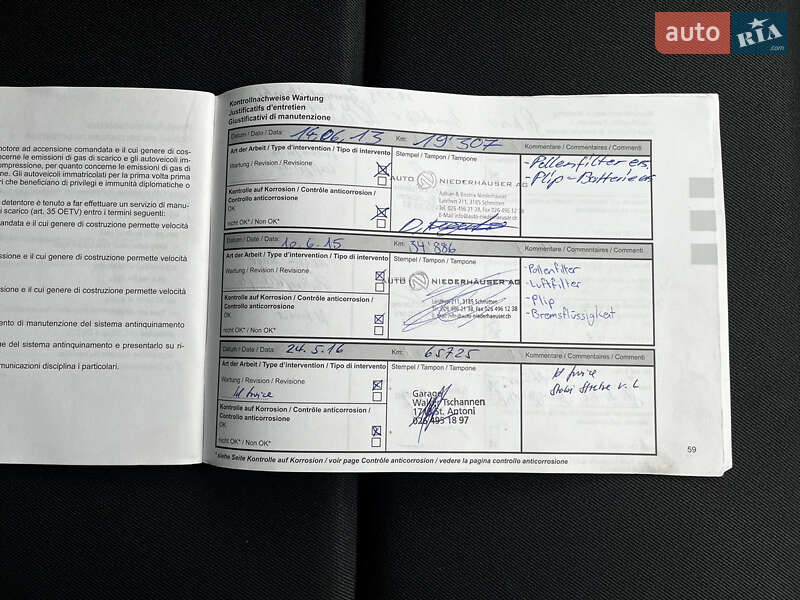 auto RIA .com
motore ad accensione comandata e il cui genere di cos-
cerne le emissioni di gas di scarico e gli autoveicoli im-
compressione, per quanto concerne le emissioni di gas di
ne. Gli autoveicoli immatricolati per la prima volta prima
ri che beneficiano di privilegi e immunità diplomatiche o
detentore è tenuto a far effettuare un servizio di manu-
scarico (art. 35 OETV) entro i termini seguenti:
andata e il cui genere di costruzione permette velocità
ssione e il cui genere di costruzione permette velocità
ssione e il cui genere di costruzione permette velocità
ento di manutenzione del sistema antinquinamento
ne del sistema antinquinamento e presentarlo su ri-
municazioni disciplina i particolari.
Kontrollnachweise Wartung
Justificatifs d'entretien
Giustificativi di manutenzione
Datum / Date / Data: 14.06.13 Km: 19'307 Kommentare / Commentaires / Commenti
Art der Arbeit / Type d'intervention / Tipo di intervento Stempel / Tampon / Tampone
Wartung / Revision / Revisione
Kontrolle auf Korrosion / Contrôle anticorrosion /
Controllo anticorrosione
OK
nicht OK* / Non OK*
AUTO NIEDERHÄUSER AG
Adrian & Beatrix Niederhäuser
Lanthen 211, 3185 Schmitten
Tel. 026 496 21 38, Fax 026 496 12 38
E-Mail info@auto-niederhaeuser.ch
- Pollenfilter ers.
- Plip-Batterie ers
Datum / Date / Data: 10.6.15 Km: 34'886 Kommentare / Commentaires / Commenti
Art der Arbeit / Type d'intervention / Tipo di intervento Stempel / Tampon / Tampone
Wartung / Revision / Revisione
Kontrolle auf Korrosion / Contrôle anticorrosion /
Controllo anticorrosione
OK
nicht OK* / Non OK*
AUTO NIEDERHÄUSER AG
Lanthen 211, 3185 Schmitten
Tel. 026 496 21 38, Fax 026 496 12 38
E-Mail info@auto-niederhaeuser.ch
- Pollenfilter
- Luftfilter
- Plip
- Bremsflüssigkeit
Datum / Date / Data: 24.5.16 Km: 65725 Kommentare / Commentaires / Commenti
Art der Arbeit / Type d'intervention / Tipo di intervento Stempel / Tampon / Tampone
Wartung / Revision / Revisione
Kontrolle auf Korrosion / Contrôle anticorrosion /
Controllo anticorrosione
OK
nicht OK* / Non OK*
Garage
Walter Tschannen
1713 St. Antoni
026 495 18 97
* siehe Seite Kontrolle auf Korrosion / voir page Contrôle anticorrosion / vedere la pagina controllo anticorrosione
59